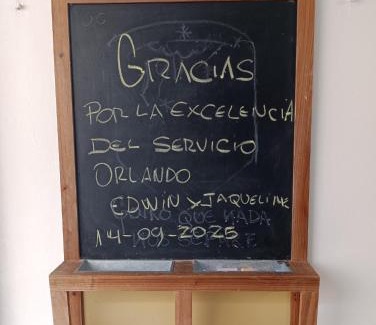 GRACIAS
POR LA EXCELENCIA
DEL SERVICIO
ORLANDO
EDWIN Y JAQUELINE
QUE NADA
14-09-2025